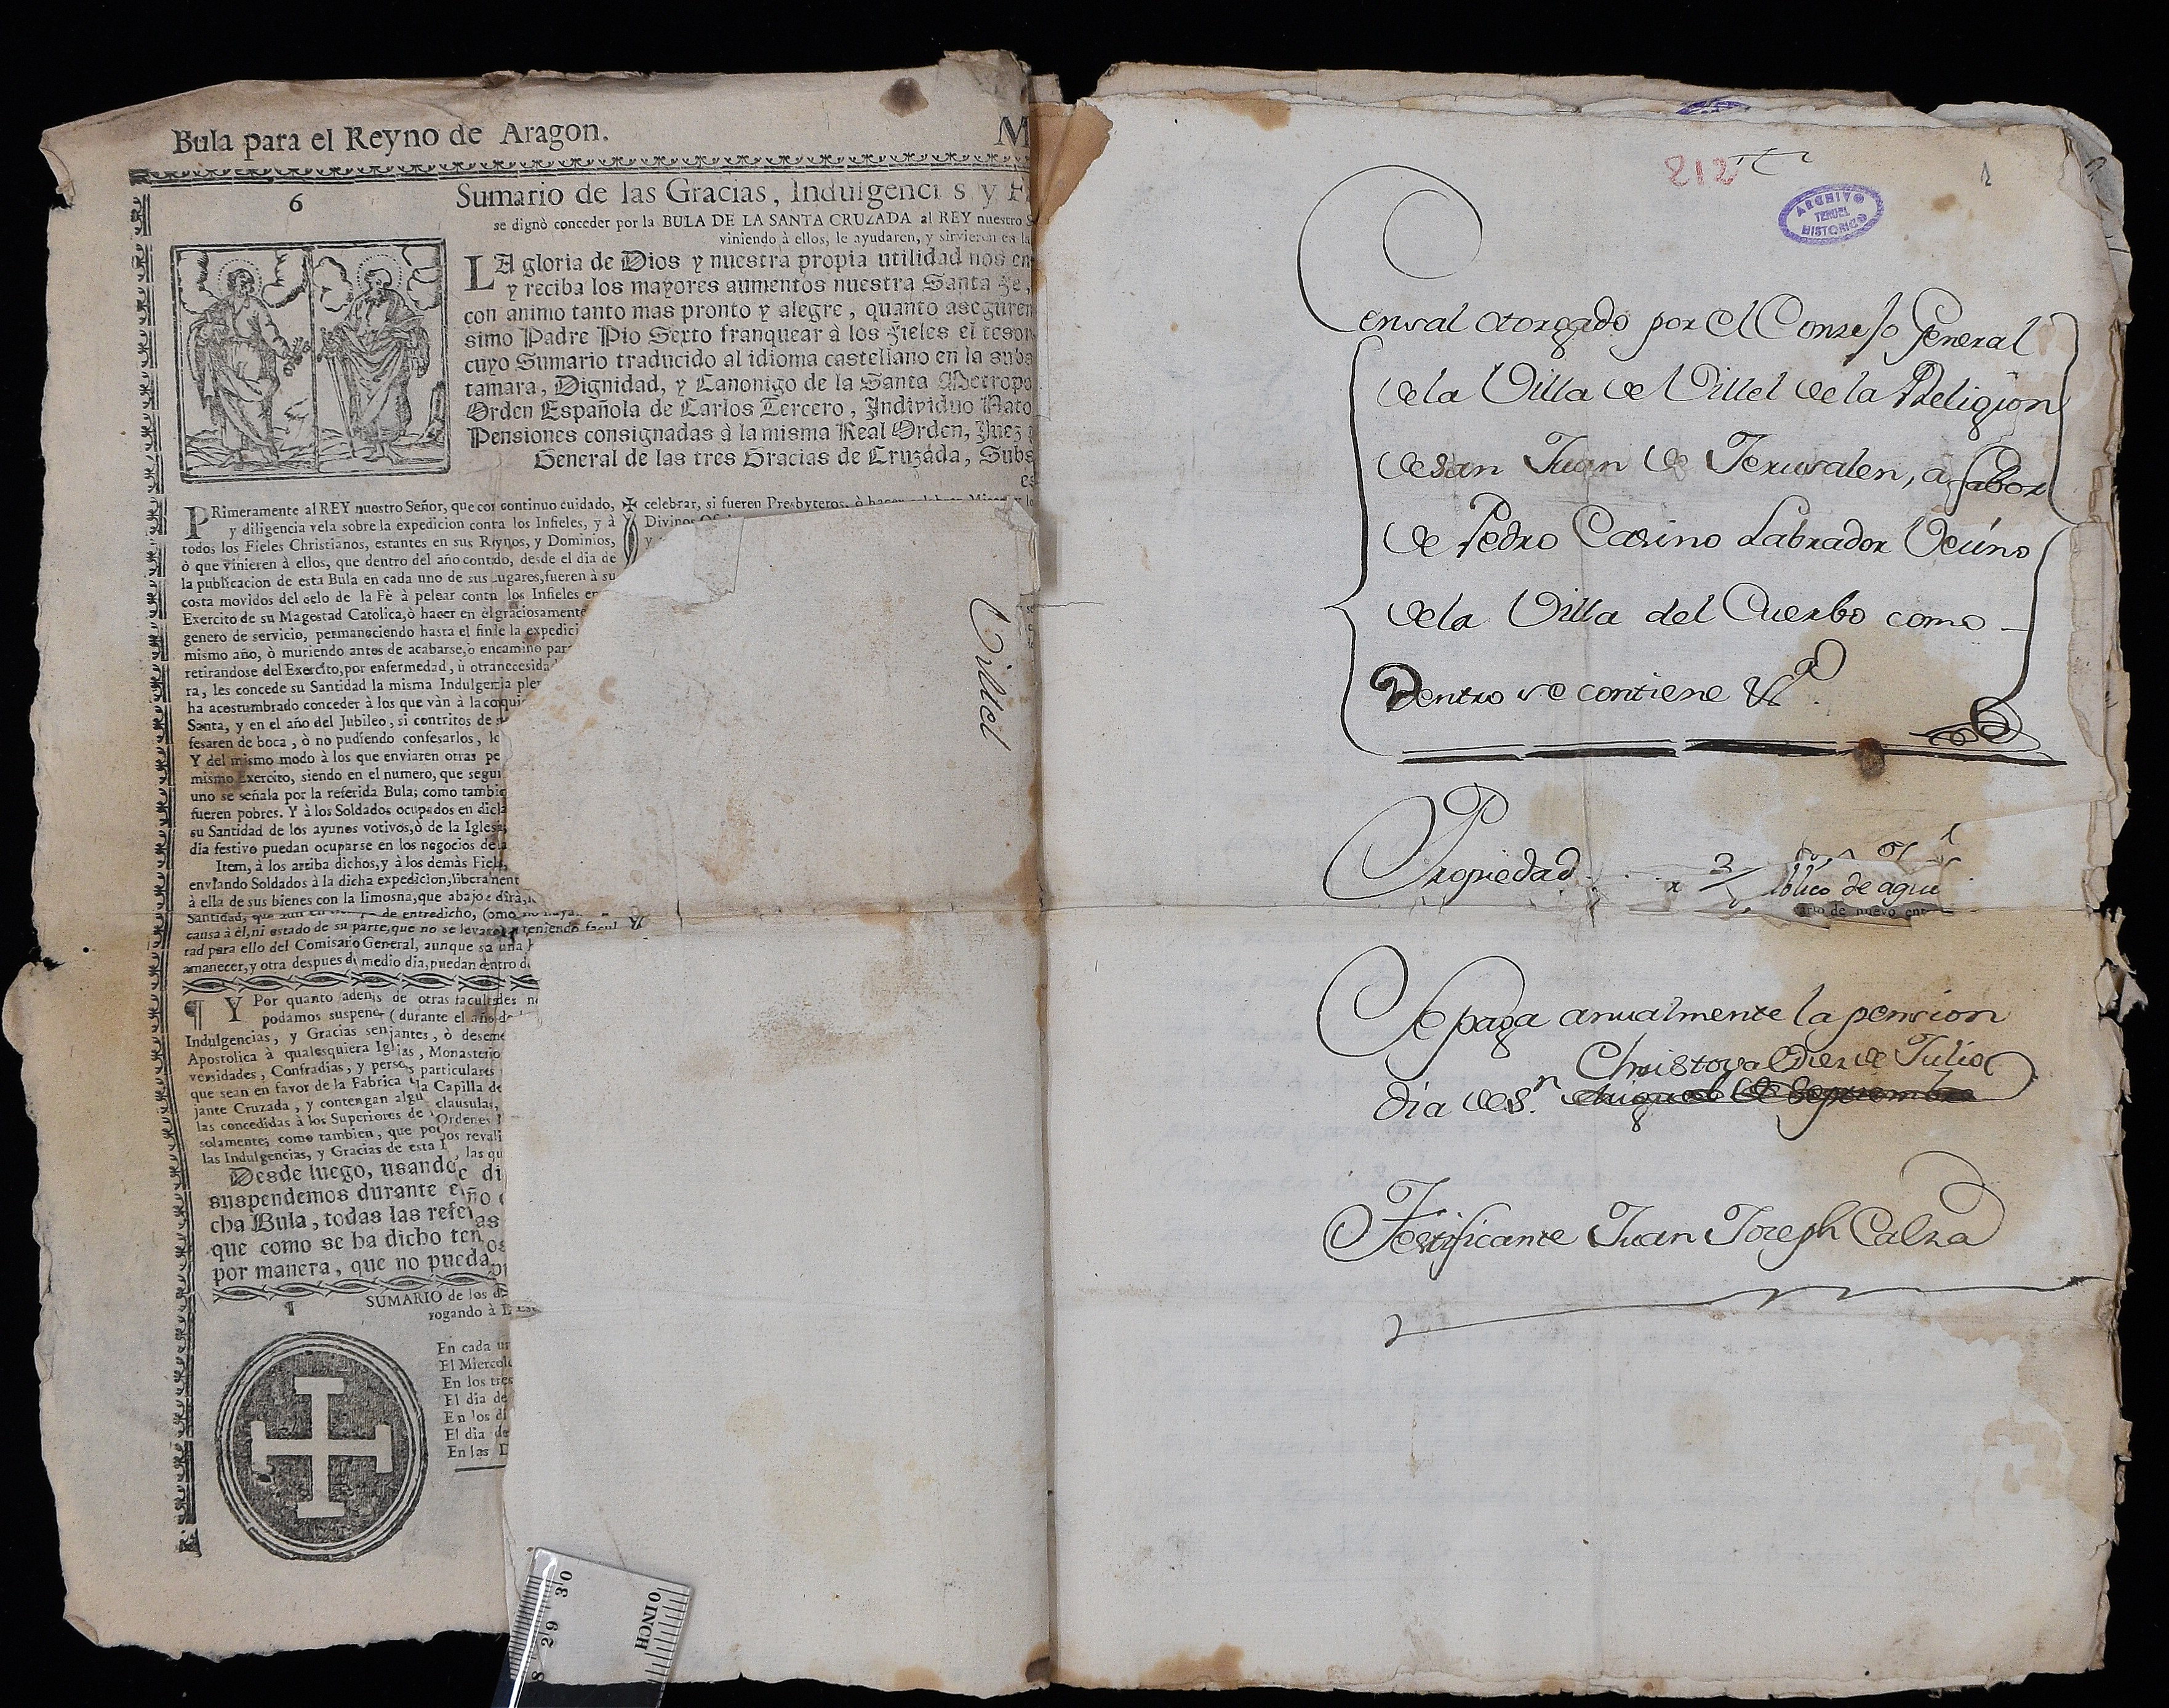 Bula para el Reyno de Aragon. M
6
Sumario de las Gracias, Indulgenci s y F
se dignò conceder por la BULA DE LA SANTA CRUZADA al REY nuestro S
viniendo à ellos, le ayudaren, y sirvieren en la
LA gloria de Dios y nuestra propia utilidad nos en
y reciba los mayores aumentos nuestra Santa Fe,
con animo tanto mas pronto y alegre, quanto aseguren
simo Padre Pio Sexto franquear à los Fieles el tesor
cuyo Sumario traducido al idioma castellano en la subs
tamara, Dignidad, y Canonigo de la Santa Metropo
Orden Española de Carlos Tercero, Individuo Nato
Pensiones consignadas à la misma Real Orden, Juez
General de las tres Gracias de Cruzáda, Subs
es
PRimeramente al REY nuestro Señor, que con continuo cuidado,
y diligencia vela sobre la expedicion contra los Infieles, y à
todos los Fieles Christianos, estantes en sus Reynos, y Dominios,
ò que vinieren à ellos, que dentro del año contado, desde el dia de
la publicacion de esta Bula en cada uno de sus Lugares, fueren à su
costa movidos del celo de la Fè à pelear contra los Infieles en
Exercito de su Magestad Catolica, ò hacer en èl graciosamente
genero de servicio, permaneciendo hasta el fin de la expedici
mismo año, ò muriendo antes de acabarse, ò en camino par
retirandose del Exercito, por enfermedad, ù otra necesida
ra, les concede su Santidad la misma Indulgencia ple
ha acostumbrado conceder à los que vàn à la conqui
Santa, y en el año del Jubileo, si contritos de s
fesaren de boca, ò no pudiendo confesarlos, lo
Y del mismo modo à los que enviaren otras pe
mismo Exercito, siendo en el numero, que segu
uno se señala por la referida Bula; como tambie
fueren pobres. Y à los Soldados ocupados en dicla
su Santidad de los ayunos votivos, ò de la Iglesa
dia festivo puedan ocuparse en los negocios de la
Item, à los arriba dichos, y à los demàs Fiels,
enviando Soldados à la dicha expedicion, liberament
à ella de sus bienes con la limosna, que abajo e dirà,
Santidad, que aun en tiempo de entredicho, (omo no haya
causa à èl, ni estado de su parte, que no se levaro, teniendo facul
tad para ello del Comisario General, aunque sa una
amanecer, y otra despues de medio dia, puedan dentro d
celebrar, si fueren Presbyteros, ò hacer celebrar Misas y
Divinos Of
¶ Y Por quanto ademàs de otras facultades n
podamos suspender (durante el año de
Indulgencias, y Gracias semejantes, ò deseme
Apostolica à qualesquiera Iglesias, Monasterio
versidades, Confradias, y personas particulares
que sean en favor de la Fabrica la Capilla de
jante Cruzada, y contengan algu clausulas,
las concedidas à los Superiores de Ordenes
solamente; como tambien, que po os revali
las Indulgencias, y Gracias de esta , las qu
Desde luego, usando e di
suspendemos durante e ño
cha Bula, todas las refe as
que como se ha dicho ten os
por manera, que no pueda
¶ SUMARIO de los d
rogando à
En cada un
El Miercol
En los tres
El dia de
En los di
El dia de
En las D
Villel
30
29
8
INCH
212
1
ARCHIVO
TERUEL
HISTORICO
Censal otorgado por el Consejo General
dela Villa de Villel dela Religion
de san Juan de Jerusalen, a fabor
de Pedro Casino Labrador Vecino
dela Villa del Cuerbo como
Dentro se contiene
Propiedad
blico de agu
ario de nuevo en
Se paga anualmente la pension
Christoval Diez de Julio
dia de Sn. Miguel de Septiembre
Testificante Juan Joseph Calza